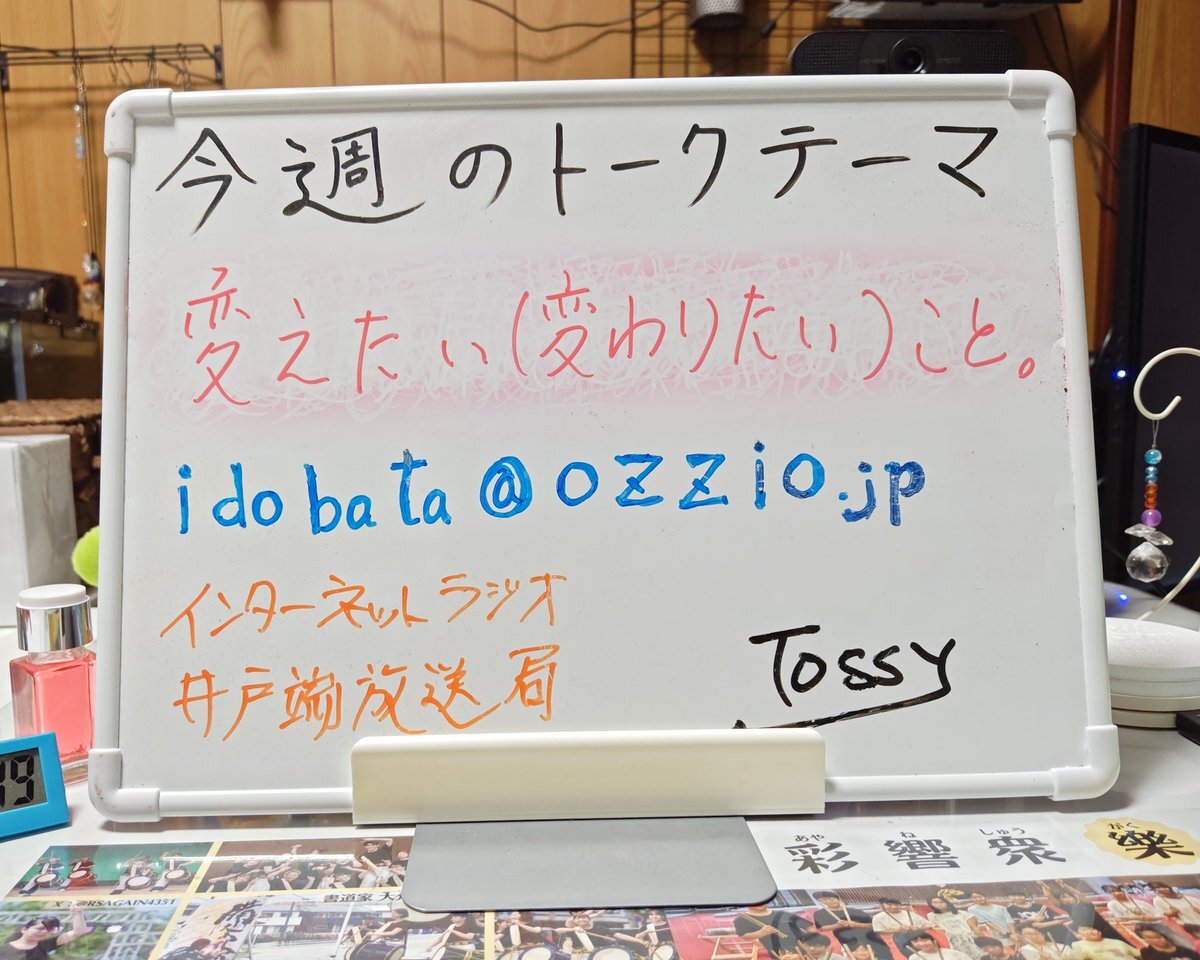 今週のトークテーマ
変えたい(変わりたい)こと。
idobata@ozzio.jp
インターネットラジオ
井戸端放送局
Tossy
19
あや ね しゅう がく
彩響衆樂
X:@RSAGAIN4351
書道家